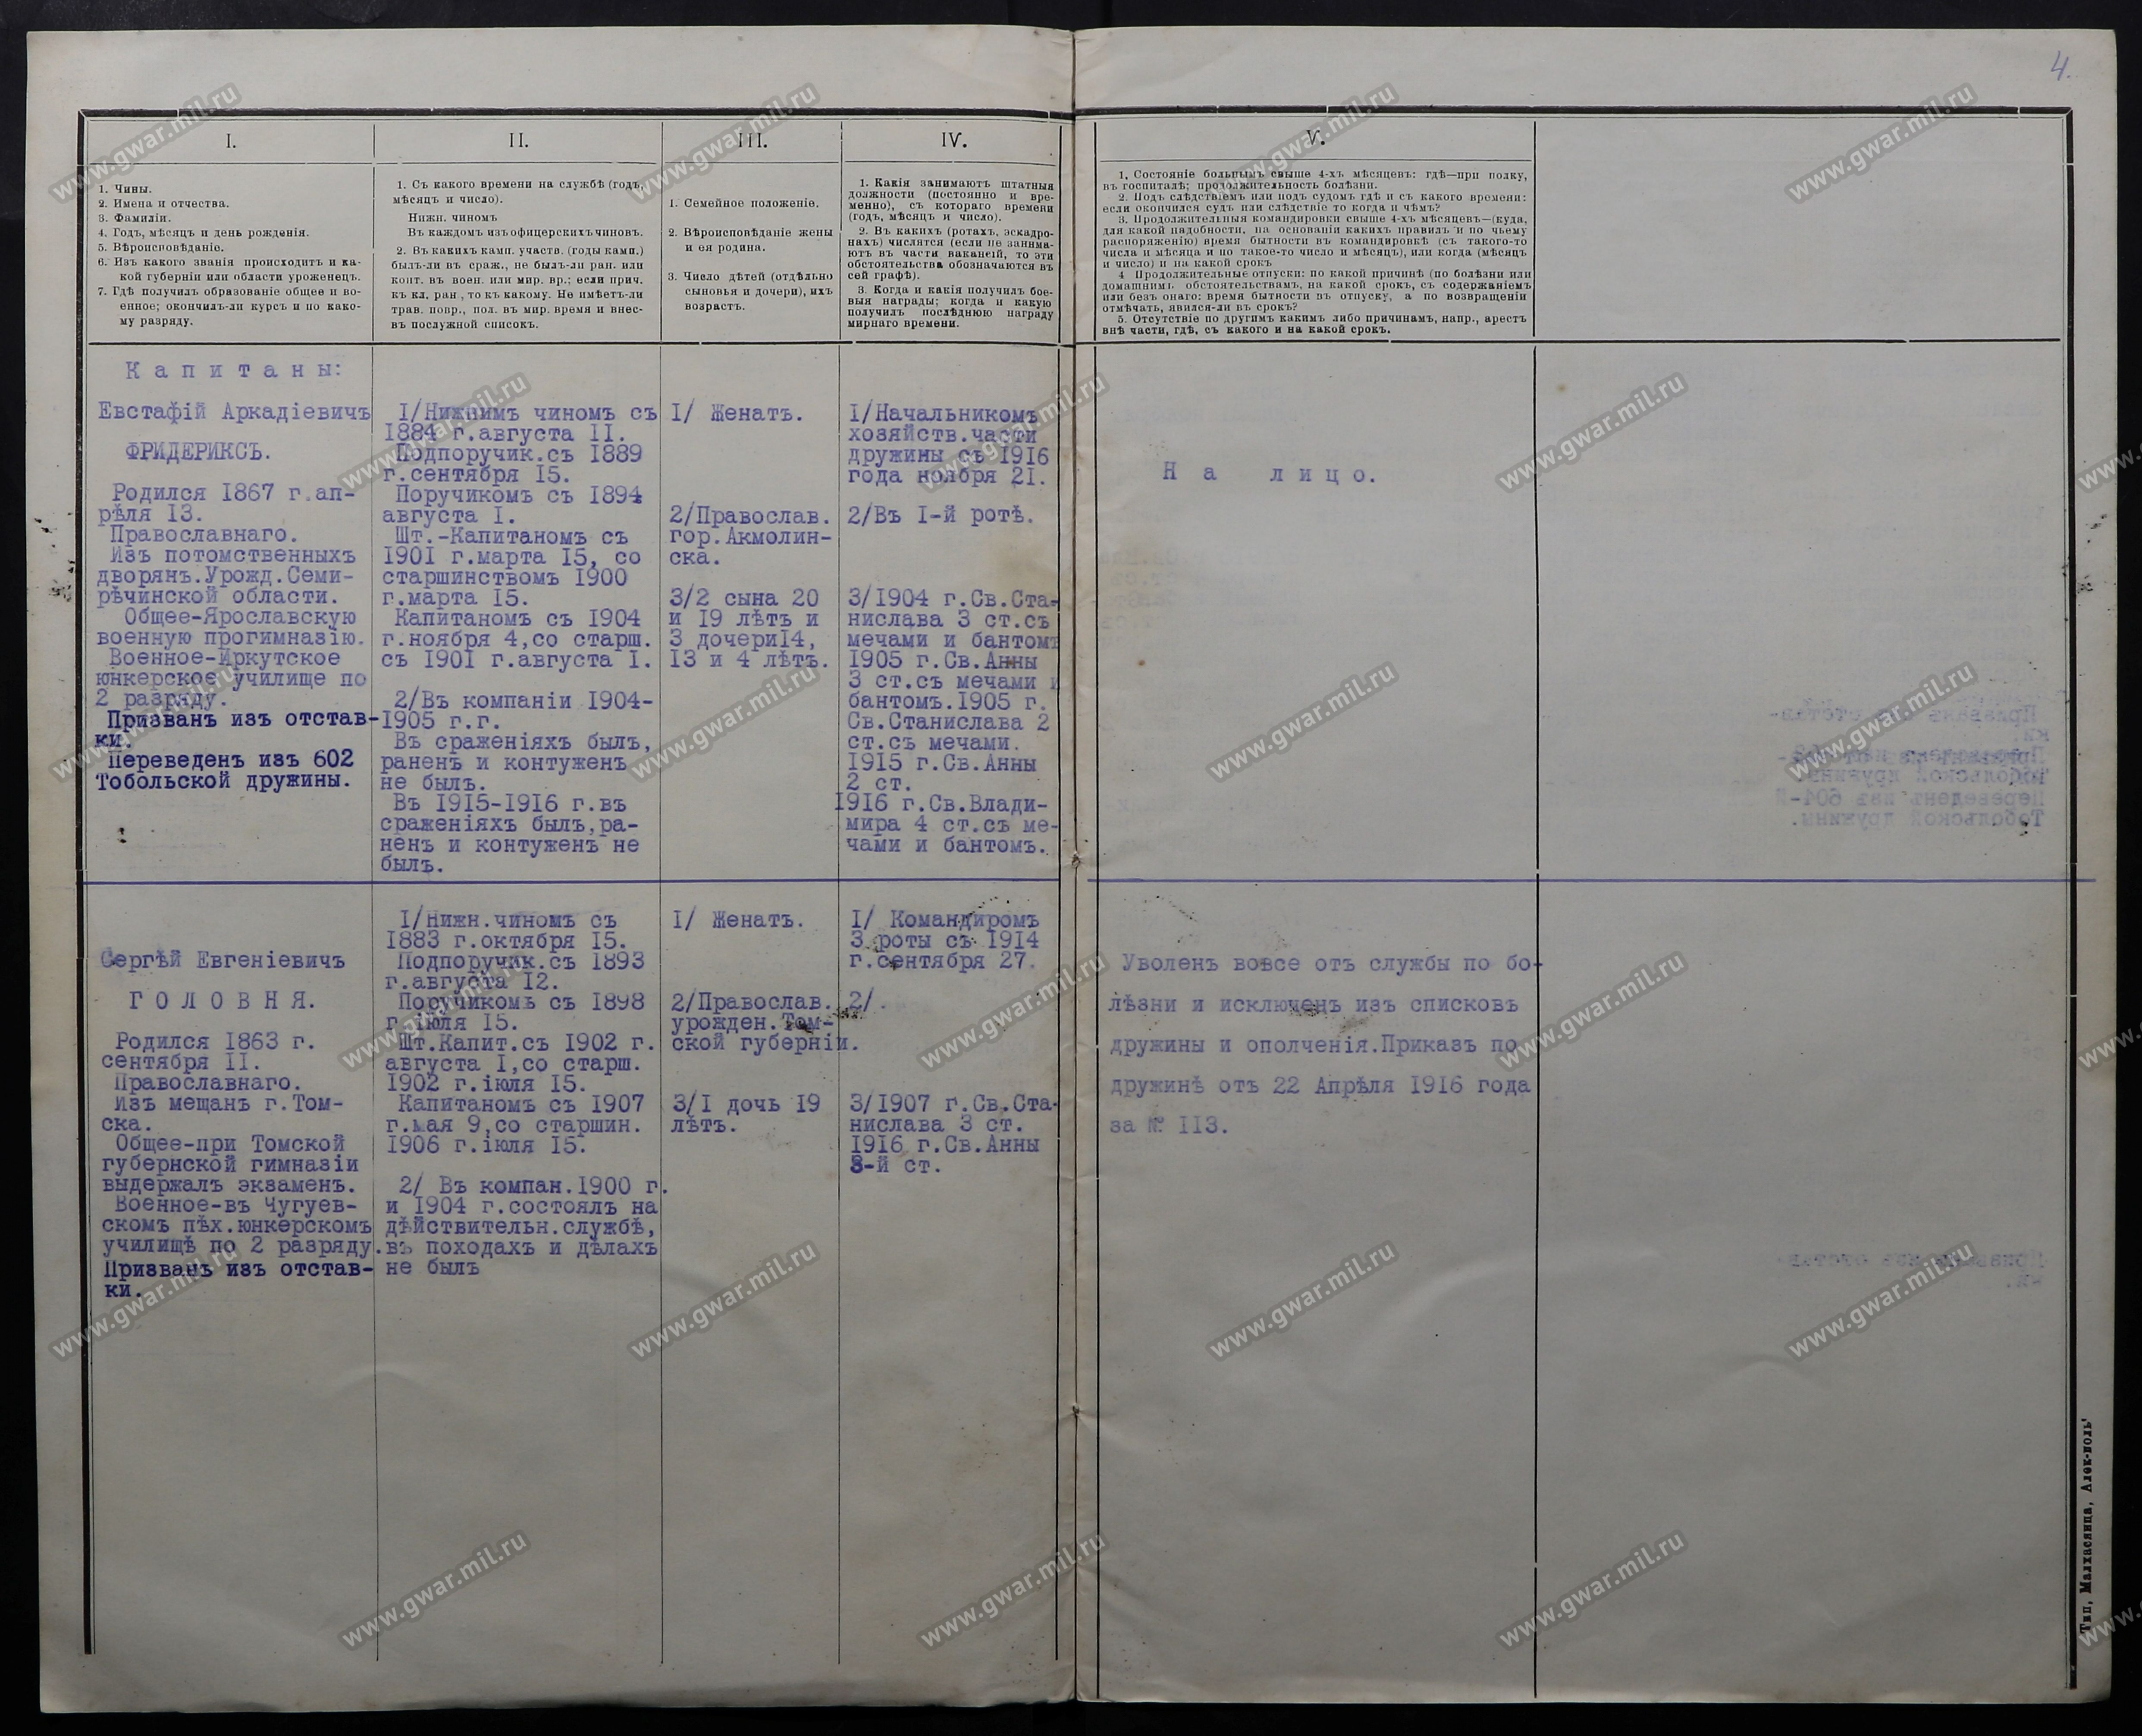 4.
I.
1. Чины.
2. Имена и отчества.
3. Фамиліи.
4. Годъ, мѣсяцъ и день рожденія.
5. Вѣроисповѣданіе.
6. Изъ какого званія происходитъ и ка-
кой губерніи или области уроженецъ.
7. Гдѣ получилъ образованіе общее и во-
енное; окончилъ-ли курсъ и по како-
му разряду.
II.
1. Съ какого времени на службѣ (годъ,
мѣсяцъ и число).
Нижн. чиномъ
Въ каждомъ изъ офицерскихъ чиновъ.
2. Въ какихъ камп. участв. (годы камп.)
былъ-ли въ сраж., не былъ-ли ран. или
конт. въ воен. или мир. вр.; если прич.
къ кл. ран., то къ какому. Не имѣетъ-ли
трав. повр., пол. въ мир. время и внес-
въ послужной списокъ.
III.
1. Семейное положеніе.
2. Вѣроисповѣданіе жены
и ея родина.
3. Число дѣтей (отдѣльно
сыновья и дочери), ихъ
возрастъ.
IV.
1. Какія занимаютъ штатныя
должности (постоянно и вре-
менно), съ котораго времени
(годъ, мѣсяцъ и число).
2. Въ какихъ (ротахъ, эскадро-
нахъ) числятся (если не занима-
ютъ въ части вакансій, то эти
обстоятельства обозначаются въ
сей графѣ).
3. Когда и какія получилъ бое-
выя награды; когда и какую
получилъ послѣднюю награду
мирнаго времени.
V.
1. Состояніе больнымъ свыше 4-хъ мѣсяцевъ: гдѣ—при полку,
въ госпиталѣ; продолжительность болѣзни.
2. Подъ слѣдствіемъ или подъ судомъ гдѣ и съ какого времени:
если окончился судъ или слѣдствіе то когда и чѣмъ?
3. Продолжительныя командировки свыше 4-хъ мѣсяцевъ—(куда,
для какой надобности, на основаніи какихъ правилъ и по чьему
распоряженію) время бытности въ командировкѣ (съ такого-то
числа и мѣсяца и по такое-то число и мѣсяцъ), или когда (мѣсяцъ
и число) и на какой срокъ
4 Продолжительные отпуски: по какой причинѣ (по болѣзни или
домашнимъ обстоятельствамъ, на какой срокъ, съ содержаніемъ
или безъ онаго: время бытности въ отпуску, а по возвращеніи
отмѣчать, явился-ли въ срокъ?
5. Отсутствіе по другимъ какимъ либо причинамъ, напр., арестъ
внѣ части, гдѣ, съ какого и на какой срокъ.
Капитаны:
Евстафій Аркадіевичъ
ФРИДЕРИКСЪ.
Родился 1867 г.ап-
рѣля 13.
Православнаго.
Изъ потомственныхъ
дворянъ.Урожд.Семи-
рѣчинской области.
Общее-Ярославскую
военную прогимназію.
Военное-Иркутское
юнкерское училище по
2 разряду.
Призванъ изъ отстав-
ки.
Переведенъ изъ 602
Тобольской дружины.
I/Нижнимъ чиномъ съ
1884 г.августа II.
Подпоручик.съ 1889
г.сентября I5.
Поручикомъ съ I894
августа I.
Шт.-Капитаномъ съ
I90I г.марта I5, со
старшинствомъ I900
г.марта I5.
Капитаномъ съ I904
г.ноября 4,со старш.
съ I90I г.августа I.
2/Въ компаніи I904-
I905 г.г.
Въ сраженіяхъ былъ,
раненъ и контуженъ
не былъ.
Въ I9I5-I9I6 г.въ
сраженіяхъ былъ,ра-
ненъ и контуженъ не
былъ.
I/ Женатъ.
2/Православ.
гор.Акмолин-
ска.
3/2 сына 20
и I9 лѣтъ и
3 дочериI4,
I3 и 4 лѣтъ.
I/Начальникомъ
хозяйств.части
дружины съ I9I6
года ноября 2I.
2/Въ I-й ротѣ.
3/I904 г.Св.Ста-
нислава 3 ст.съ
мечами и бантомъ
I905 г.Св.Анны
3 ст.съ мечами и
бантомъ.I905 г.
Св.Станислава 2
ст.съ мечами.
I9I5 г.Св.Анны
2 ст.
I9I6 г.Св.Влади-
мира 4 ст.съ ме-
чами и бантомъ.
На лицо.
Сергѣй Евгеніевичъ
ГОЛОВНЯ.
Родился I863 г.
сентября II.
Православнаго.
Изъ мещанъ г.Том-
ска.
Общее-при Томской
губернской гимназіи
выдержалъ экзаменъ.
Военное-въ Чугуев-
скомъ пѣх.юнкерскомъ
училищѣ по 2 разряду.
Призванъ изъ отстав-
ки.
I/Нижн.чиномъ съ
I883 г.октября I5.
Подпоручик.съ I893
г.августа I2.
Поручикомъ съ I898
г.іюля I5.
Шт.Капит.съ I902 г.
августа I,со старш.
I902 г.іюля I5.
Капитаномъ съ I907
г.мая 9,со старшин.
I906 г.іюля I5.
2/ Въ компан.I900 г.
и I904 г.состоялъ на
дѣйствительн.службѣ,
въ походахъ и дѣлахъ
не былъ
I/ Женатъ.
2/Православ.
урожден.Том-
ской губерніи.
3/I дочь I9
лѣтъ.
I/ Командиромъ
3 роты съ I9I4
г.сентября 27.
2/.
3/I907 г.Св.Ста-
нислава 3 ст.
I9I6 г.Св.Анны
3-й ст.
Уволенъ вовсе отъ службы по бо-
лѣзни и исключенъ изъ списковъ
дружины и ополченія.Приказъ по
дружинѣ отъ 22 Апрѣля I9I6 года
за № II3.
Тип, Малхасянца, Алек-поль
www.gwar.mil.ru